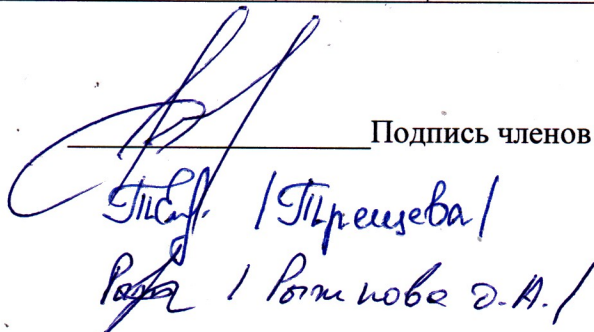 Подпись членов
/Трещева/
/ Рыжкова Э.А./